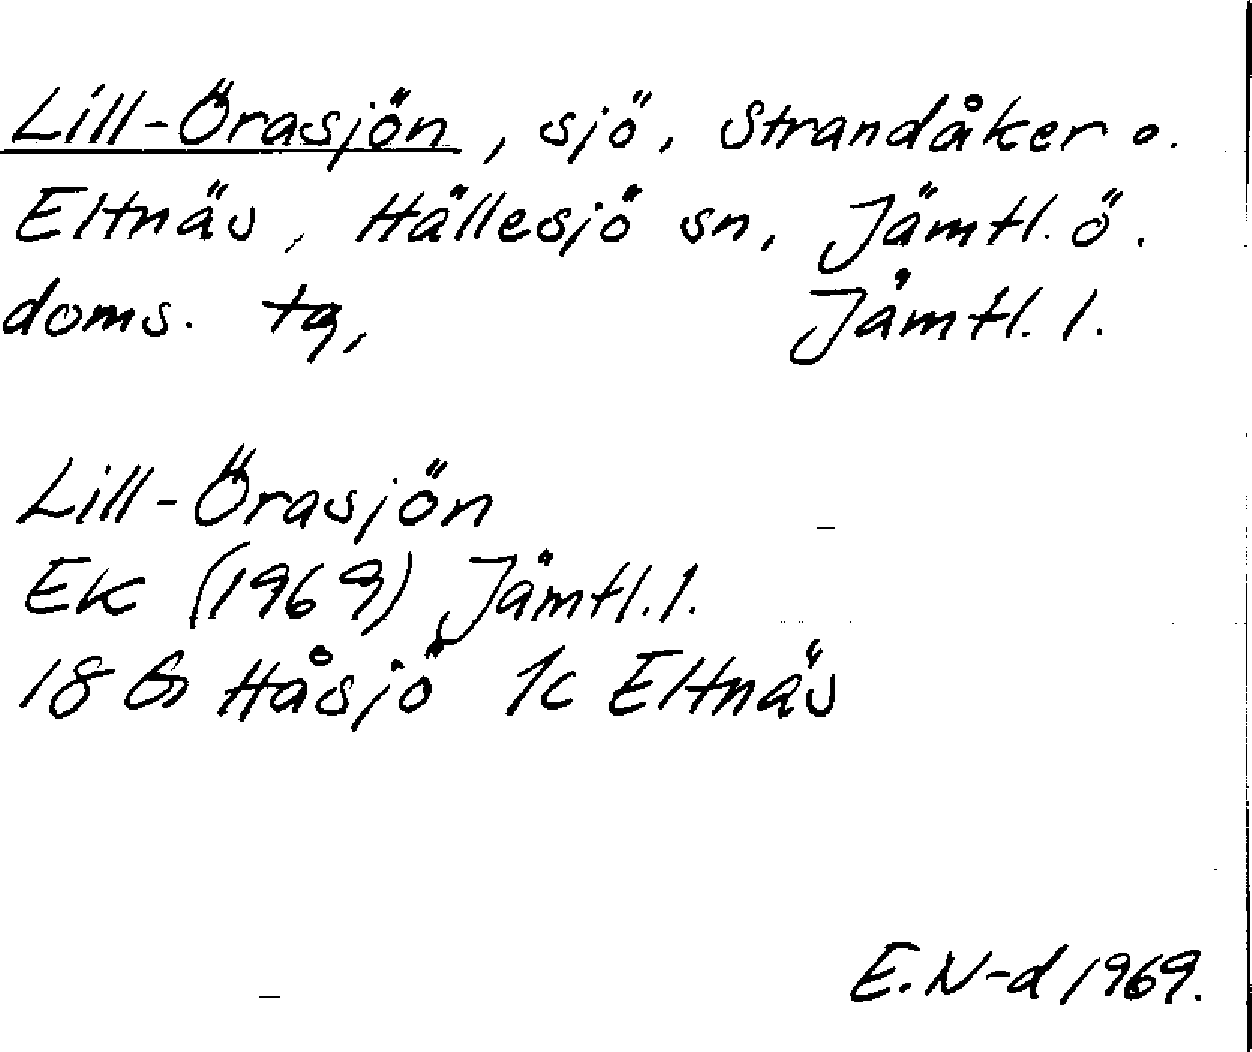 Lill-Örasjön, sjö, Strandåker o.
Eltnäs, Hällesjö sn, Jämtl. ö.
doms. tg, Jämtl. l.
Lill-Örasjön
Ek (1969) Jämtl. l.
18 G Håsjö 1c Eltnäs
E. N-d 1969.